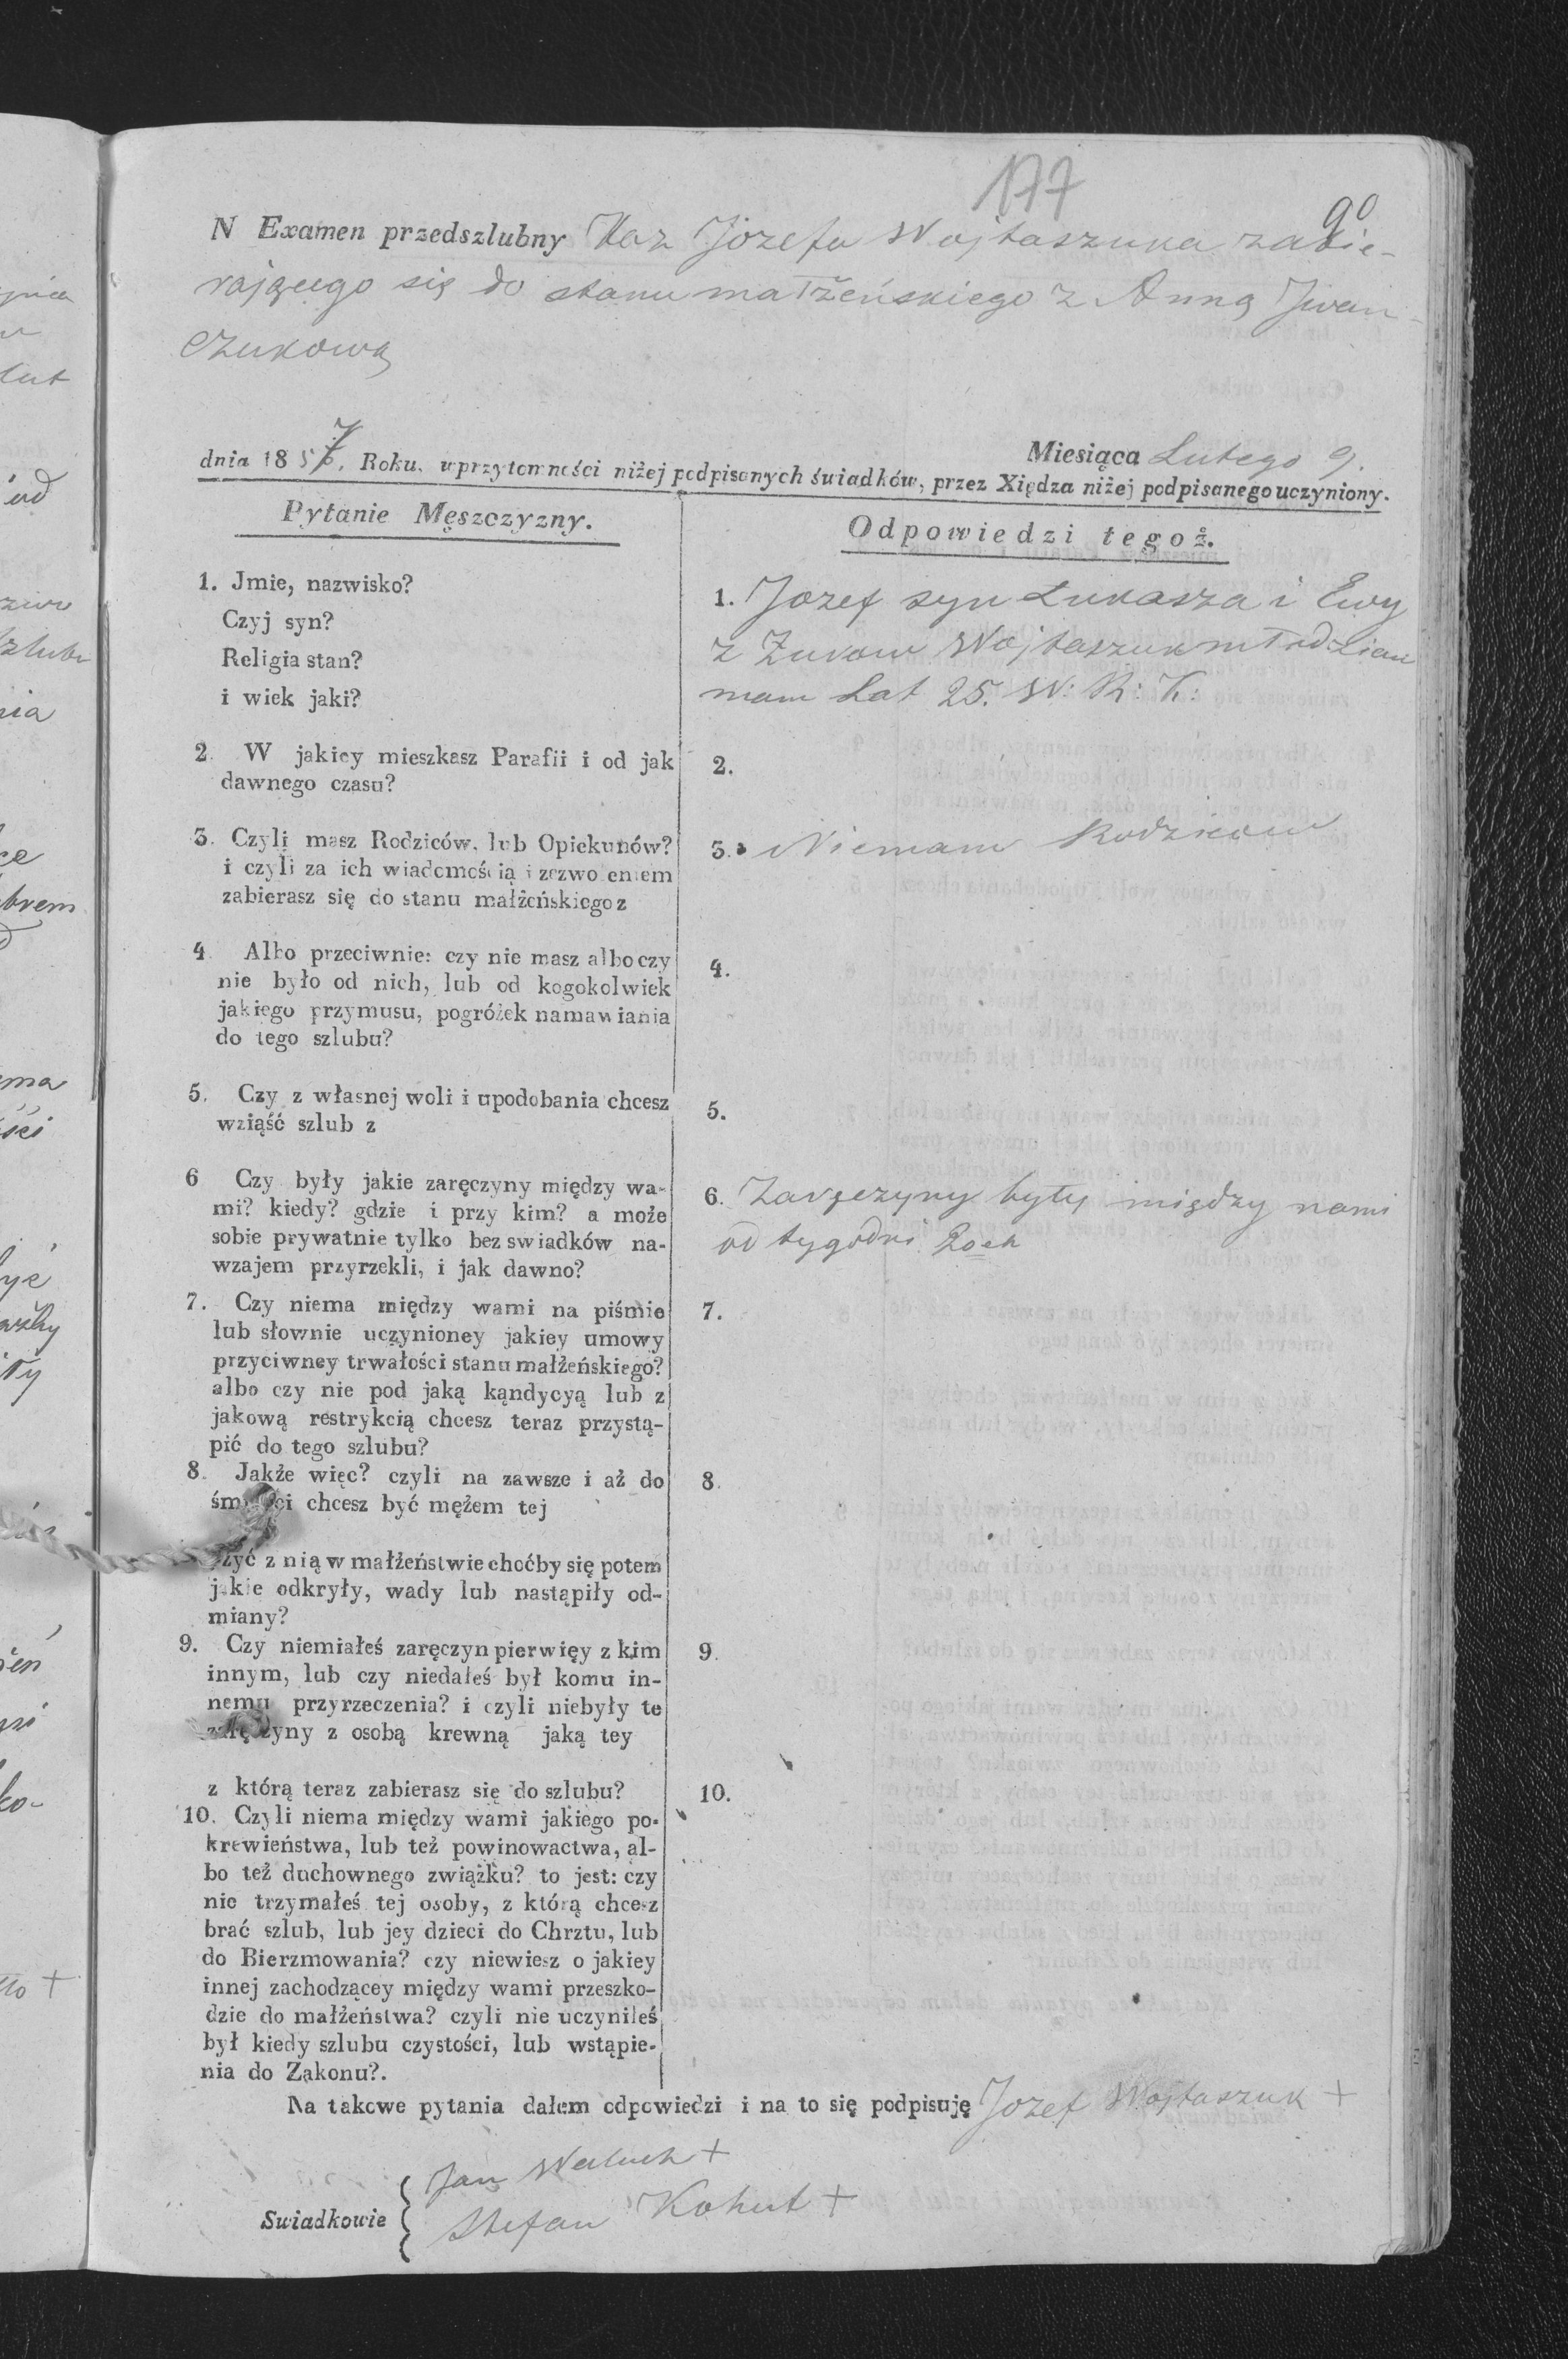 177
90
N Examen przedszlubny Józefa Wojtaszuka zabie-
rającego się do stanu małżeńskiego z Anną Jwan-
czukową
Miesiąca Lutego 9.
dnia 1857. Roku, w przytomności niżej podpisanych świadków, przez Xiędza niżej podpisanego uczyniony.
Pytanie Męszczyzny.
Odpowiedzi tegoż.
1. Jmie, nazwisko?
Czyj syn?
Religia stan?
i wiek jaki?
1. Jozef syn Lukasza i Ewy
z Żukow Wojtaszuk młodzian
mam Lat 25. W: R: K:
2. W jakiey mieszkasz Parafii i od jak
dawnego czasu?
2.
3. Czyli masz Rodziców, lub Opiekunów?
i czyli za ich wiadomością i zezwoleniem
zabierasz się do stanu małżeńskiego z
3. Niemam Rodzicow
4 Albo przeciwnie: czy nie masz albo czy
nie było od nich, lub od kogokolwiek
jakiego przymusu, pogróżek namawiania
do tego szlubu?
4.
5. Czy z własnej woli i upodobania chcesz
wziąść szlub z
5.
6 Czy były jakie zaręczyny między wa-
mi? kiedy? gdzie i przy kim? a może
sobie prywatnie tylko bez swiadków na-
wzajem przyrzekli, i jak dawno?
6. Zaręczyny były między nami
od tygodni 2och
7. Czy niema między wami na piśmie
lub słownie uczynioney jakiey umowy
przyciwney trwałości stanu małżeńskiego?
albo czy nie pod jaką kąndycyą lub z
jakową restrykcią chcesz teraz przystą-
pić do tego szlubu?
7.
8. Jakże więc? czyli na zawsze i aż do
śmierci chcesz być mężem tej
żyć z nią w małżeństwie choćby się potem
jakie odkryły, wady lub nastąpiły od-
miany?
8.
9. Czy niemiałeś zaręczyn pierwięy z kim
innym, lub czy niedałeś był komu in-
nemu przyrzeczenia? i czyli niebyły te
zaręczyny z osobą krewną jaką tey
z którą teraz zabierasz się do szlubu?
9.
10. Czyli niema między wami jakiego po-
krewieństwa, lub też powinowactwa, al-
bo też duchownego związku? to jest: czy
nie trzymałeś tej osoby, z którą chcesz
brać szlub, lub jey dzieci do Chrztu, lub
do Bierzmowania? czy niewiesz o jakiey
innej zachodzącey między wami przeszko-
dzie do małżeństwa? czyli nie uczyniłeś
był kiedy szlubu czystości, lub wstąpie-
nia do Zakonu?.
10.
Na takowe pytania dałem odpowiedzi i na to się podpisuję Jozef Wojtaszuk +
Swiadkowie
Jan +
Stefan Kohut +